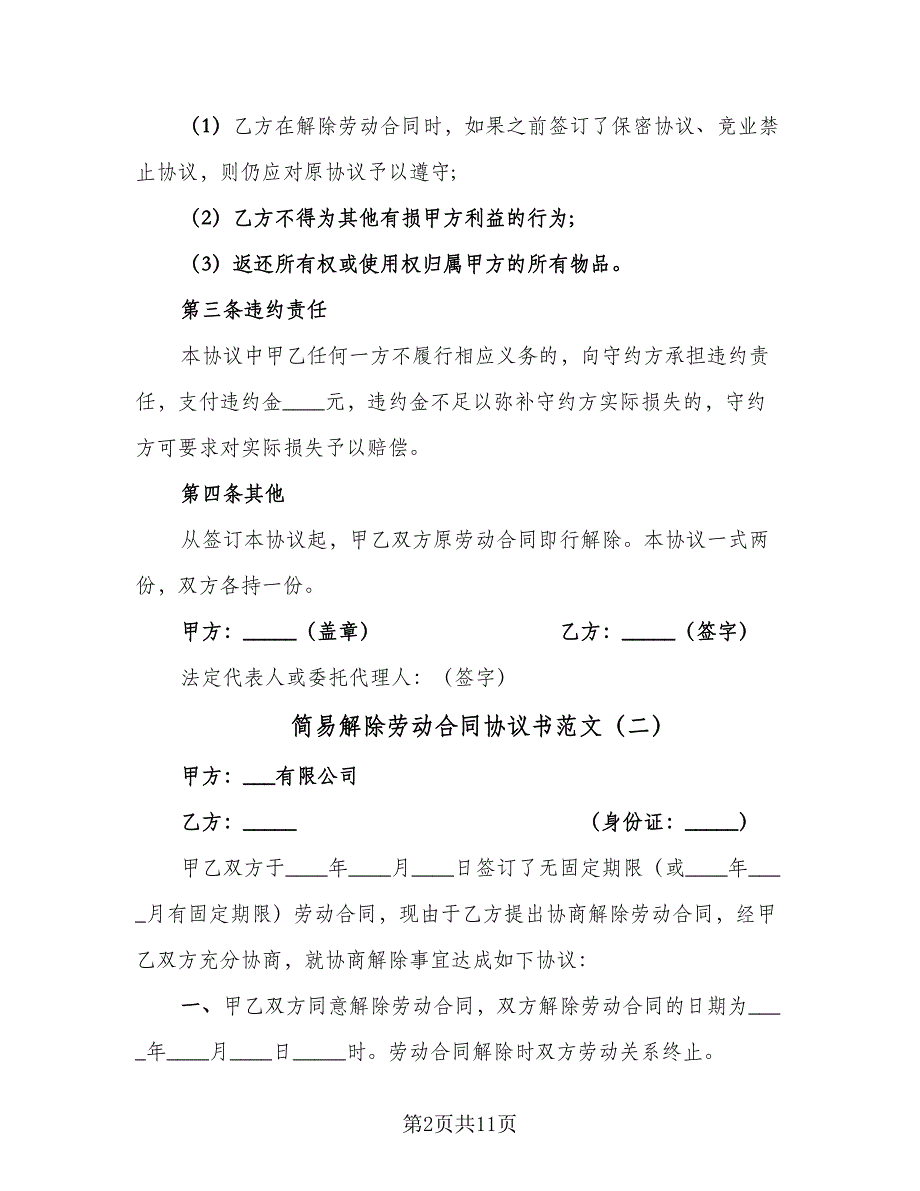 （1）乙方在解除劳动合同时，如果之前签订了保密协议、竞业禁
止协议，则仍应对原协议予以遵守;
（2）乙方不得为其他有损甲方利益的行为;
（3）返还所有权或使用权归属甲方的所有物品。
第三条违约责任
本协议中甲乙任何一方不履行相应义务的，向守约方承担违约责
任，支付违约金____元，违约金不足以弥补守约方实际损失的，守约
方可要求对实际损失予以赔偿。
第四条其他
从签订本协议起，甲乙双方原劳动合同即行解除。本协议一式两
份，双方各持一份。
甲方：_____（盖章） 乙方：_____（签字）
法定代表人或委托代理人：（签字）
简易解除劳动合同协议书范文（二）
甲方：___有限公司
乙方：_____ （身份证：_____）
甲乙双方于____年____月____日签订了无固定期限（或____年___
_月有固定期限）劳动合同，现由于乙方提出协商解除劳动合同，经甲
乙双方充分协商，就协商解除事宜达成如下协议：
一、甲乙双方同意解除劳动合同，双方解除劳动合同的日期为___
_年____月____日_____时。劳动合同解除时双方劳动关系终止。
第2页共11页